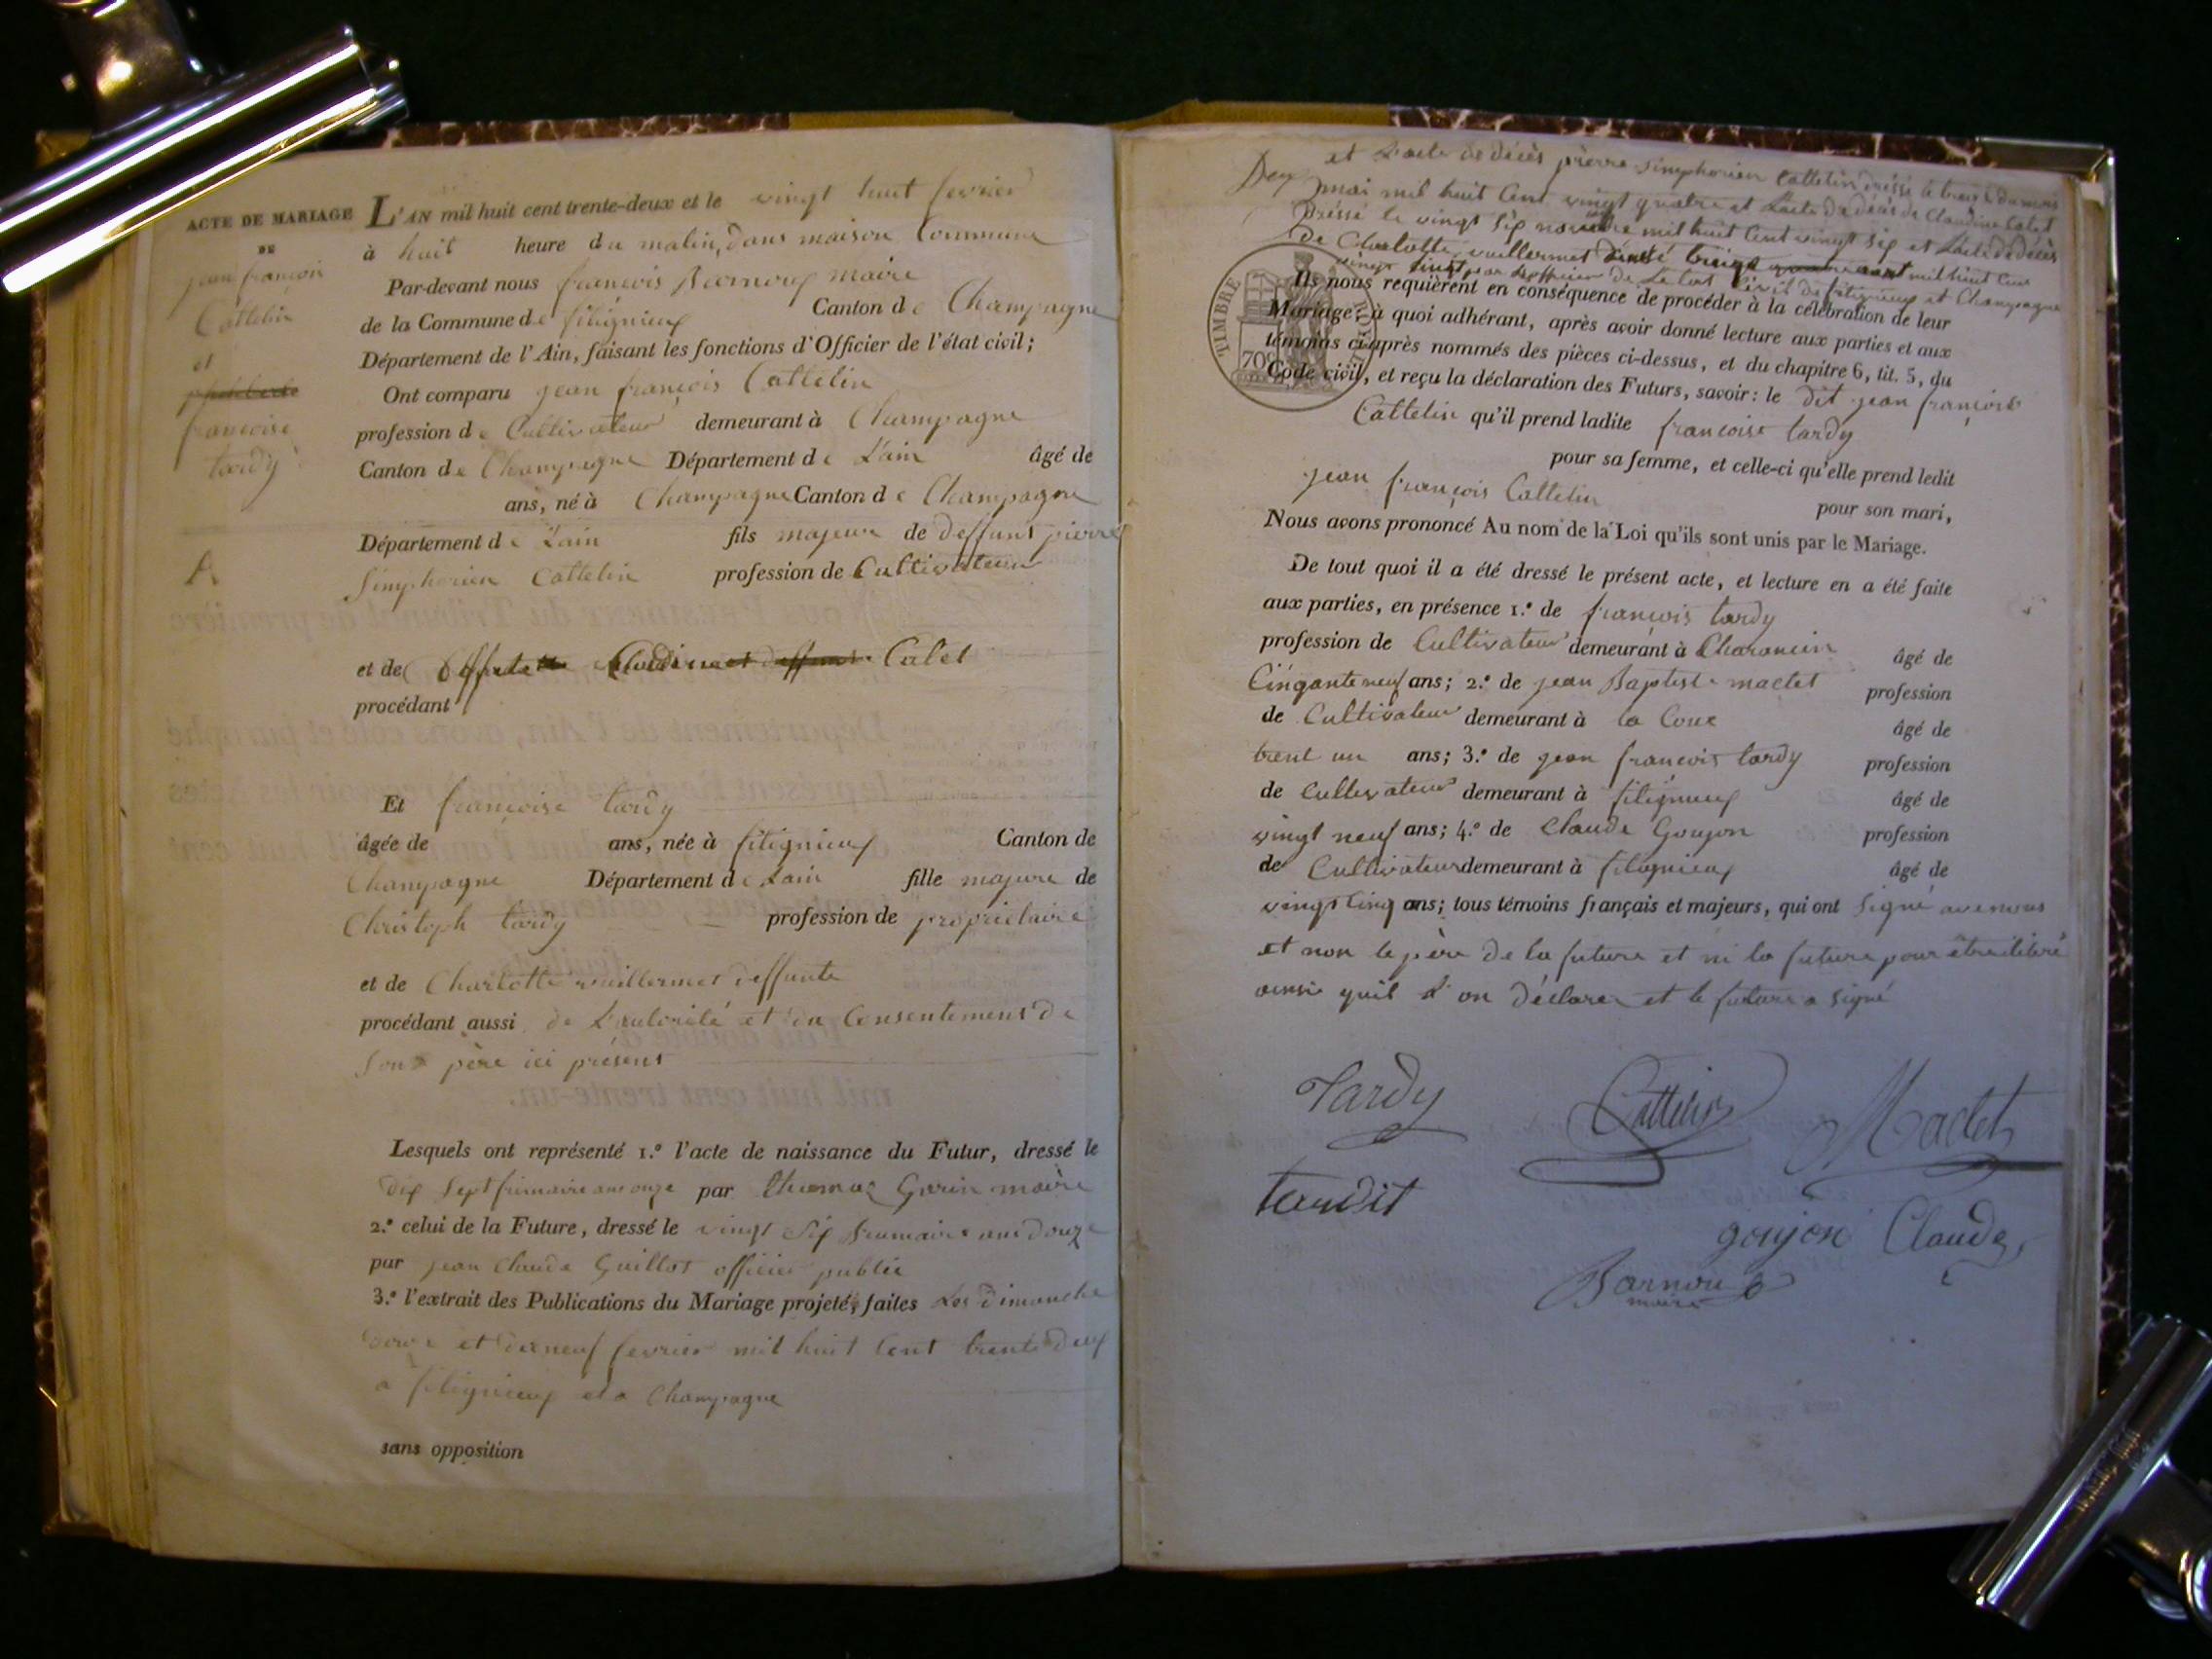 ACTE DE MARIAGE
DE
jean françois
Cattelin
et
francoise
tardy
A
L'AN mil huit cent trente-deux et le vingt huit fevrier
à huit heure du matin, dans maison Commune
Par-devant nous francois Barnoux maire
de la Commune de filignieux Canton de Champagne
Département de l'Ain, faisant les fonctions d'Officier de l'état civil;
Ont comparu jean françois Cattelin
profession de Cultivateur demeurant à Champagne
Canton de Champagne Département de L'ain âgé de
ans, né à Champagne Canton de Champagne
Département de L'ain fils majeur de deffunt pierre
Simphorien Cattelin profession de Cultivateur
et de Calet
procédant
Et francoise tardy
âgée de ans, née à filignieux Canton de
Champagne Département de L'ain fille majure de
Christoph tardy profession de propriétaire
et de Charlotte vuillermet deffunte
procédant aussi de L'autorité et du Consentement de
Son père ici présent
Lesquels ont représenté 1.º l'acte de naissance du Futur, dressé le
dix Sept frimaire an onze par Thomas Gorin maire
2.º celui de la Future, dressé le vingt Six brumaire an douze
par jean Claude Guillot officier public
3.º l'extrait des Publications du Mariage projeté, faites Les dimanche
douze et dixneuf fevrier mil huit Cent trente deux
a filignieux et a Champagne
sans opposition
et L'acte de décès pierre Simphorien Cattelin dressé le
mai mil huit Cent vingt quatre et L'acte de décès de Claudine Calet
dressé le vingt Six novembre mil huit Cent vingt Six et L'acte de décès
de Charlotte vuillermet mil huit Cent
vingt par L'officier de Civil de filignieux et Champagne
TIMBRE ROYAL
70c
Ils nous requièrent en conséquence de procéder à la célébration de leur
Mariage; à quoi adhérant, après avoir donné lecture aux parties et aux
témoins ci-après nommés des pièces ci-dessus, et du chapitre 6, tit. 5, du
Code civil, et reçu la déclaration des Futurs, savoir: le dit jean francois
Cattelin qu'il prend ladite francoise tardy
pour sa femme, et celle-ci qu'elle prend ledit
jean françois Cattelin pour son mari,
Nous avons prononcé Au nom de la Loi qu'ils sont unis par le Mariage.
De tout quoi il a été dressé le présent acte, et lecture en a été faite
aux parties, en présence 1.º de françois tardy
profession de Cultivateur demeurant à Charancin âgé de
Cinqante neuf ans; 2.º de jean Baptiste maclet profession
de Cultivateur demeurant à la Coux âgé de
trent un ans; 3.º de jean francois tardy profession
de Cultivateur demeurant à filignieux âgé de
vingt neuf ans; 4.º de Claude Goujon profession
de Cultivateur demeurant à filignieux âgé de
vingt Cinq ans; tous témoins français et majeurs, qui ont Signé avenous
et non le père de la future et ni la future pour être iliteré
ainsi quil L'on déclare et le future a Signé
Tardy Cattelin Maclet
tardit
goujon Claude
Barnoux
maire